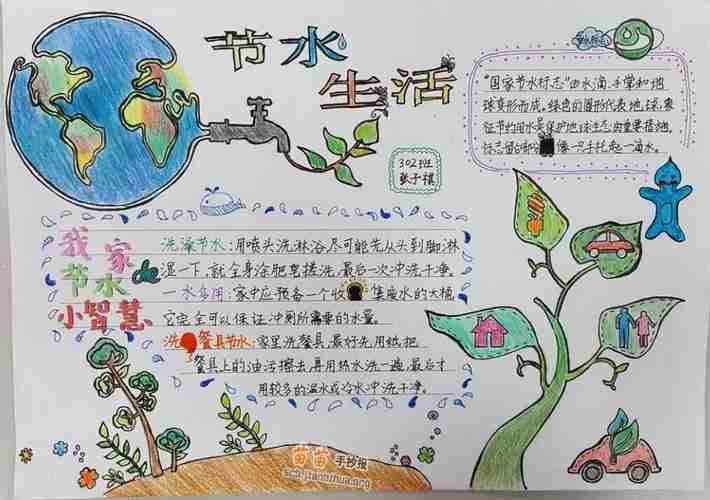 节水
生活
"国家节水标志"由水滴、手掌和地
球变形而成。绿色的圆形代表地球,象
征节约用水是保护地球生态的重要措施。
标志留白部 像一只手托起一滴水。
302班
张子棋
我家
节水
小智慧
洗澡节水:用喷头洗淋浴尽可能先从头到脚淋
湿一下,就全身涂肥皂搓洗,最后一次冲洗干净。
一水多用:家中应预备一个收 集废水的大桶
它完全可以保证冲厕所需要的水量。
洗 餐具节水:家里洗餐具最好先用纸把
餐具上的油污擦去,再用热水洗一遍,最后才
用较多的温水或冷水冲洗干净。
苗苗手抄报